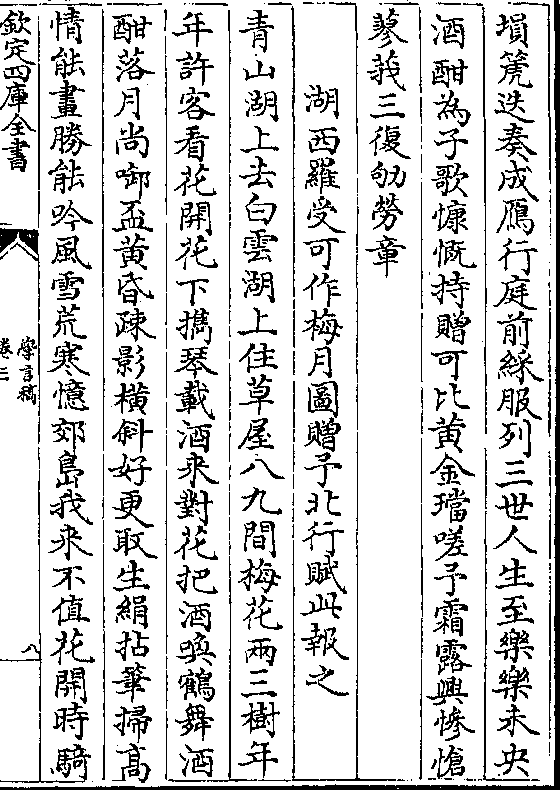 塤箎迭奏成鴈行庭前綵服列三世人生至樂樂未央
酒酣為子歌慷慨持贈可比黄金璫嗟予霜露興慘愴
蓼莪三復劬勞章
湖西羅受可作梅月圖贈予北行賦此報之
青山湖上去白雲湖上住草屋八九間梅花兩三樹年
年許客看花開花下攜琴載酒來對花把酒喚鶴舞酒
酣落月尚啣盃黄昏疎影橫斜好更取生絹拈筆掃高
情能畫勝能吟風雪荒寒憶郊島我來不值花開時騎
欽定四庫全書
學言稿
卷三
八